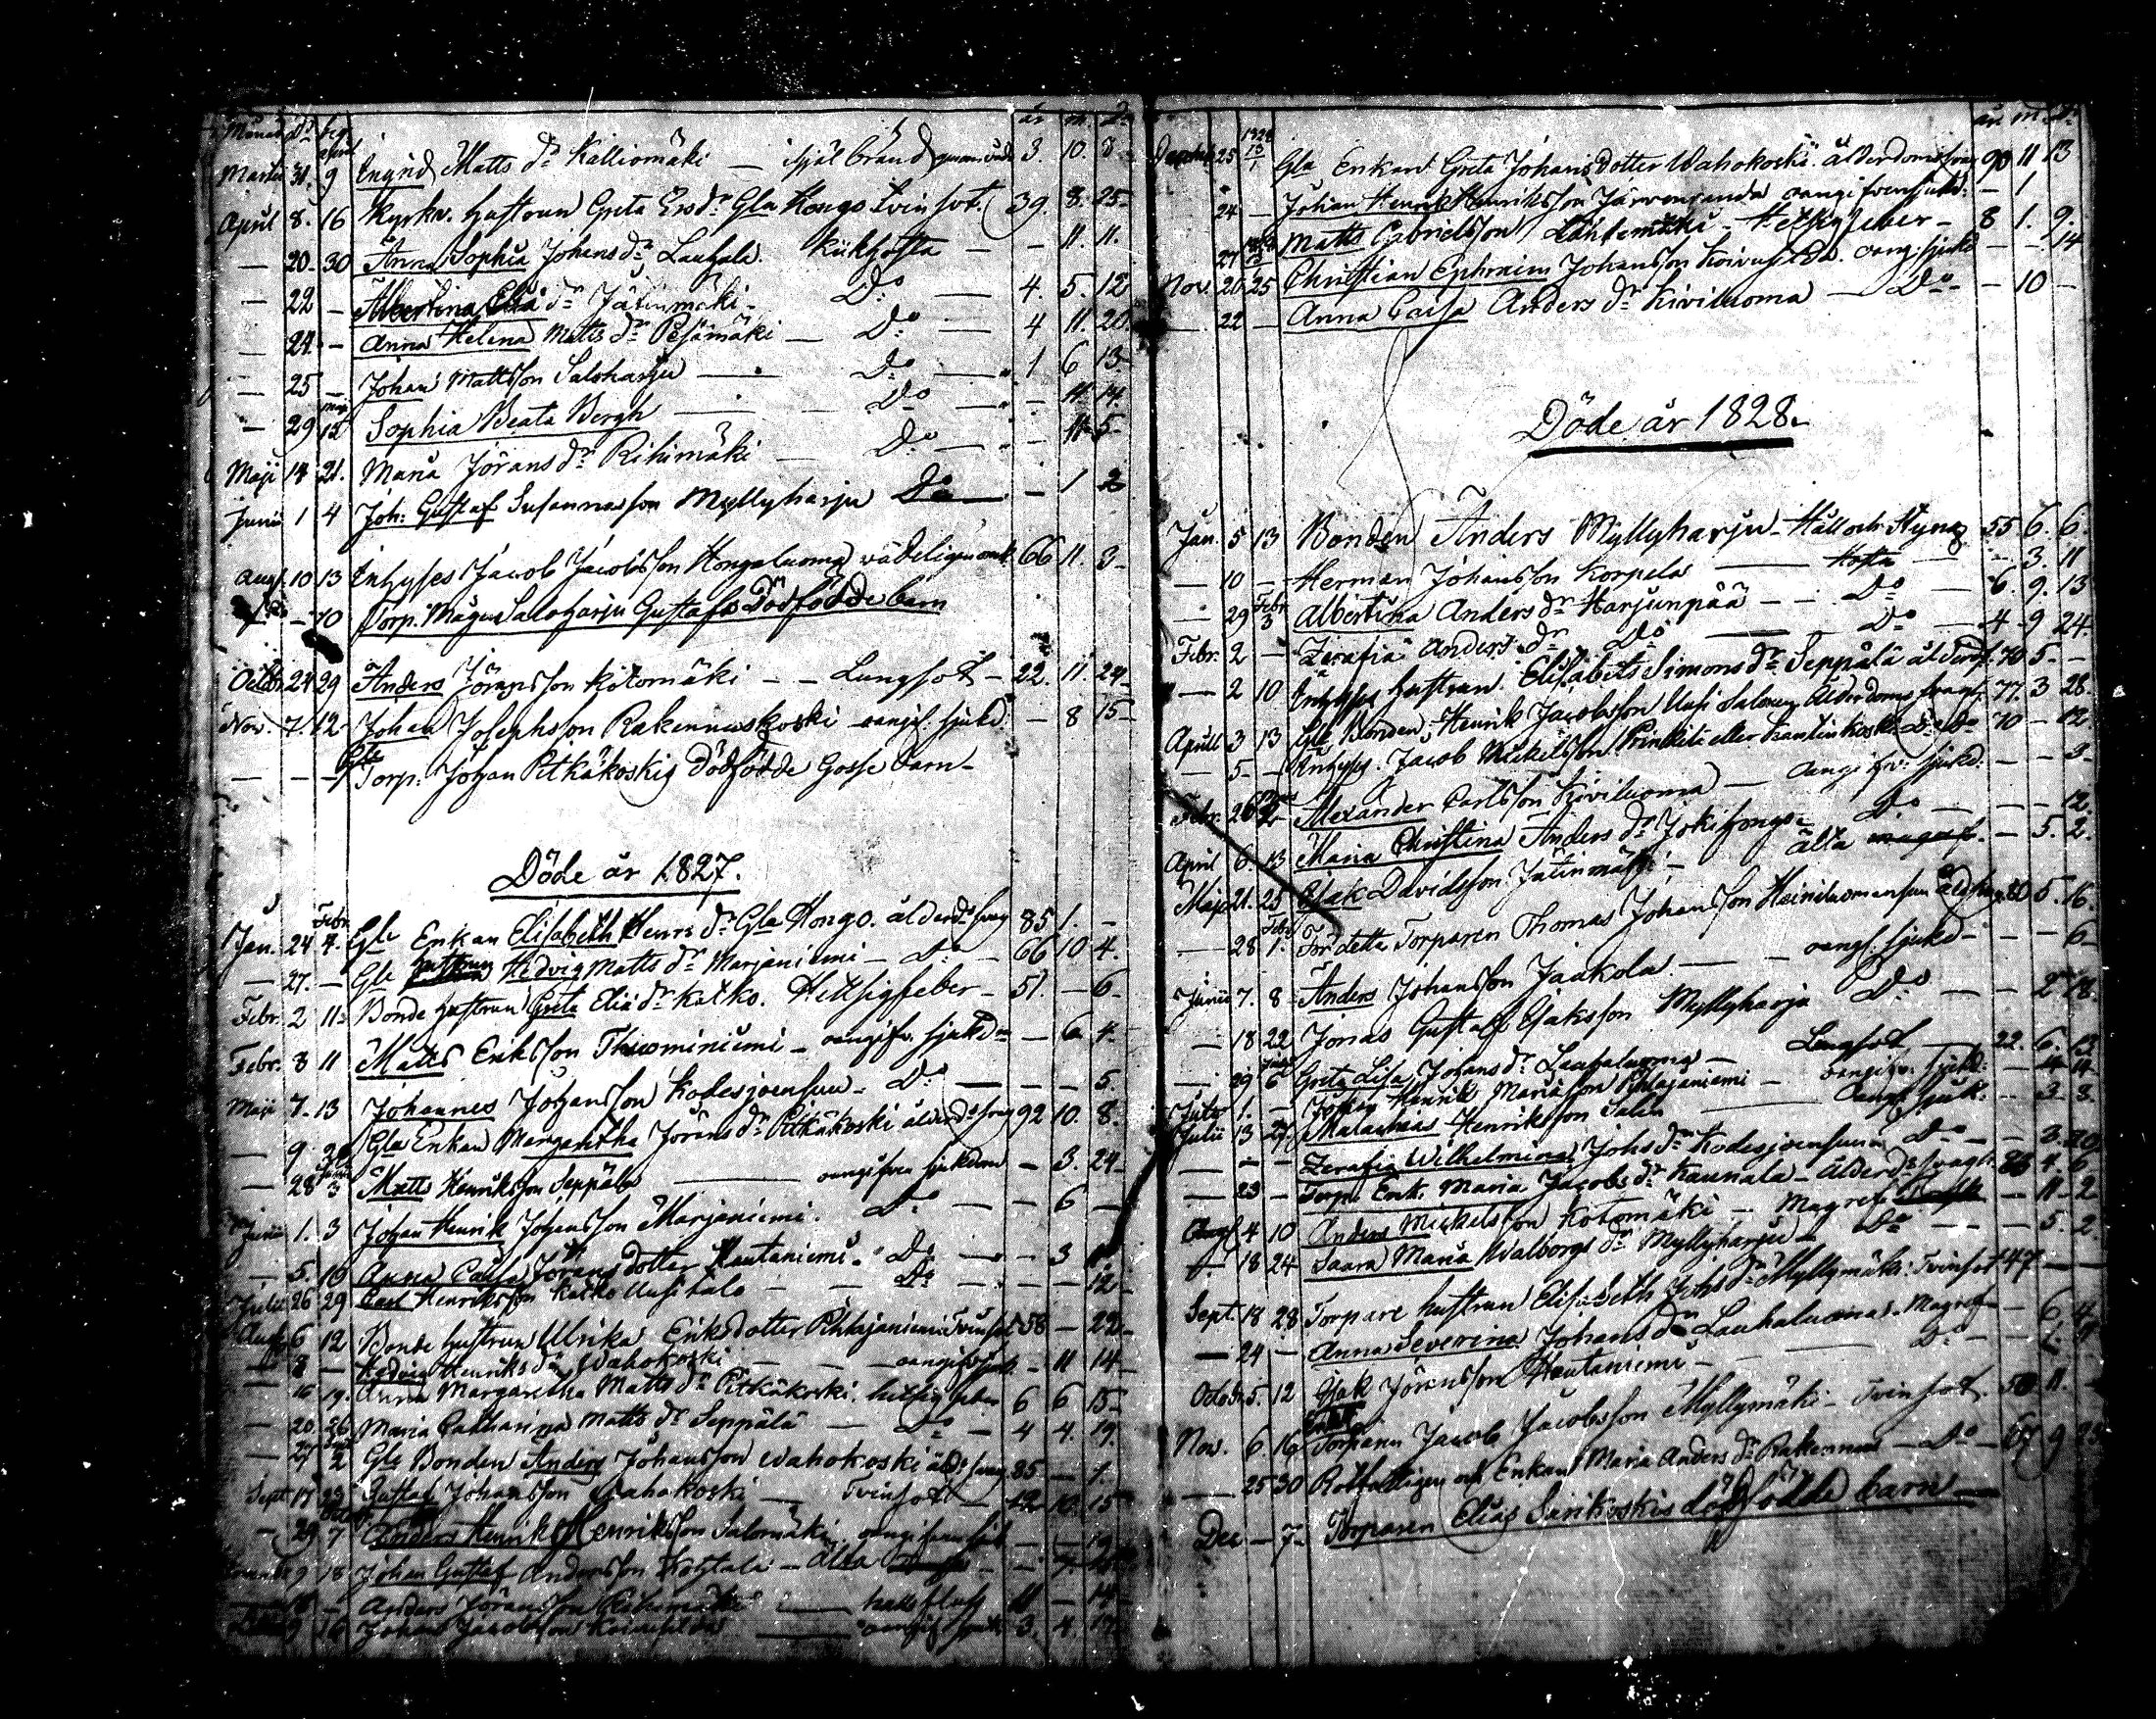 Månad Dt. beg. år m. D.
Martii 31. 9 april Ingrid Matts dr Kalliomäki — ihjäl bränd 3. 10. 8
April 8. 16 Kyrkv. hustrun Greta Ersdr Gla Kongo Tvinsot. 39. 8. 25
— 20. 30 Anna Sophia Johansdr Lauhala. Kikhosta — — 11. 11.
— 22 — Albertina Elia dr Jätinmäki — Do — 4. 5. 12
— 24 — Anna Helena Matts dr Pesämäki — Do — 4 11. 20.
— 25 — Johan Mattsson Saloharju — Do — 1 6 13
— 29 maji 13 Sophia Beata Bergh — Do — — 11. 14.
Maji 14. 21. Maria Jörans dr Rihimäki — Do — — 11. 5
Junii 1 4 Joh: Gustaf Susannasson Myllyharju Do — — 1 2
Aug. 10 13 Inhyses Jacob Jacobsson Kongoluoma vådeligen 66 11. 3
— 10 Torp. Mågen Saloharju Gustafs Dödfödde barn
Octobr 24 29 Anders Jöransson Kotomäki — Lungsot — 22. 11. 24
Nov. 7. 12 Johan Josephsson Rakennuskoski oangif. sjukd: — 8 15
— — — Torp. Johan Pitkäkoskis dödfödde Gosse barn
Döde år 1827.
Jan. 24 Febr. 4. Gla Enkan Elisabeth Henr: dr Gla Kongo. ålderds svag 85 1. —
— 27. — Gla hustrun Hedvig Matts dr Marjaniemi — Do — 66 10 4.
Febr. 2 11 Bonde hustrun Greta Elia dr Katko. Hetsigfeber — 51. — 6
Febr. 8 11 Matts Eriksson Thuominiemi — oangifv. sjukd — — 6 4
Maji 7. 13 Johannes Johansson Kodesjoensuu — Do — — — 5.
— 9. 20 Gla Enkan Margaretha Jörans dr Pitkäkoski ålderds svag 92 10. 8.
— 28 Junii 3 Matts Henriksson Seppälä — oangifven sjukdom — 3. 24
Junii 1. 3 Johan Henrik Johansson Marjaniemi. Do — — 6 —
— 5. 10 Anna Caisa Jörans dotter Hautaniemi. Do — — 3
Julii 26 29 Carl Henriksson Katko Uusitalo — Do — — — 12
Aug. 6 12 Bonde hustrun Ulrika Eriksdotter Pihlajaniemi Tvinsot 58 — 22
— 8 — Hedvig Henriks dr Wahokoski — oangifv. sjukd — 11 14
— 16 19. Anna Margaretha Matts dr Pitkäkoski. hetsig feber 6 6 15
— 20. 26 Maria Catharina Matts dr Seppälä — Do — 4 4. 19.
— 27 2 Gla Bonden Anders Johansson Wahokoski åldds svag 85 — 1.
Sept. 17 23 Gustaf Johansson Wahokoski — Tvinsot — 12 10. 15
— 29 7 Anders Henrik Henriksson Salomäki oangifven sjukd — — 19
9 18 Johan Gustaf Andersson Kohtala — älta
— Anders Jöransson Rihimäki — halsfluss 11 — 14
9 16 Johan Jacobsson Koivusilda — oangif. sjukd 3. 4. 17.
år. m. D.
25 1828 13/1 Gla Enkan Greta Johans dotter Wahokoski. ålderdoms svag 90 11 13
24 — Johan Henrik Henriksson Järvenranda oangifven sjukd: — 1
27 Matts Gabrielsson Lähtemäki — Hetsigfeber — 8 1. 9.
Nov. 20 25 Christian Ephraim Johansson Koivusilda. oang: sjukd — — 14
— 22 — Anna Caisa Anders dr Kiviluoma — Do — — 10 —
Döde år 1828.
Jan. 5 13 Bonden Anders Myllyharju — Håll och Styng 55 6. 6.
— 10 — Herman Johansson Korpela — Hosta — — 3. 11
— 29 Febr 3 Albertina Anders dr Harjunpää — Do — 6. 9. 13
Febr. 2 — Zerafia Anders dr Do — Do — 4 9 24
— 2 10 Inhyses hustrun Elisabets Simons dr Seppälä ålderds. 70 5. —
April 3 13 Gla Bonden Henrik Jacobsson Uusi Salomäki Ålderdoms svag 77. 3 28.
— 5 — Inhyses. Jacob Mickelsson Prinkkilä eller Hautinkoski Do 70 — 12
Febr. 26 Alexander Carlsson Kiviluoma — oangifv: sjukd: — — 3
April 6. 13 Maria Christina Anders dr Jokihongo — Do — — — 12.
Maji 21. 25 Isak Davidsson Jätinmäki — älta — 5. 2.
— 28 Febr 1. Förlätta Torparen Thomas Johansson Heiniluomansuu 5. 16.
Junii 7. 8 Anders Johansson Jaakola — oangf. sjukd — — — 6
— 18 22 Jonas Gustaf Isaksson Myllyharju Do — — 2 18.
— 29 6 Greta Lisa Johans dr Lauhaluoma — Lungsot 22. 6. 13
Julii 1. — Johan Henrik Mariasson Pihlajaniemi — oangifv. sjukd: — 4 14
Julii 13 27 Malachias Henriksson Salu — oangf. sjuk: — 3 8.
— — — Zerafia Wilhelmina Johs dr Kodesjoensuu Do — — 3. 20
— 23 — Torp. Enk. Maria Jacobs dr Kaunala — Ålderds svagh. 85 4. 6
Aug. 4 10 Anders Mickelsson Kotomäki — Magref — 11 2
— 18 24 Saara Maria Walborgs dr Myllyharju — Do — — 5. 2.
Sept. 18 28 Torpare hustrun Elisabeth Johs dr Myllymäki. Tvinsot 47 — —
— 24 — Anna Severina Johans dr Lauhaluoma. Magref — — 6 4
Octobr 5. 12 Isak Jöransson Hautaniemi — Do —
Nov. 6. 16 Torparen Jacob Jacobsson Myllymäki — Tvinsot. 50 11. —
— 25 30 Rotfattigen och Enkan Maria Anders dr Rakennus — Do — 67. 9 23
Dec — 7 Torparen Elias Sarikoskis dödfödde barn —